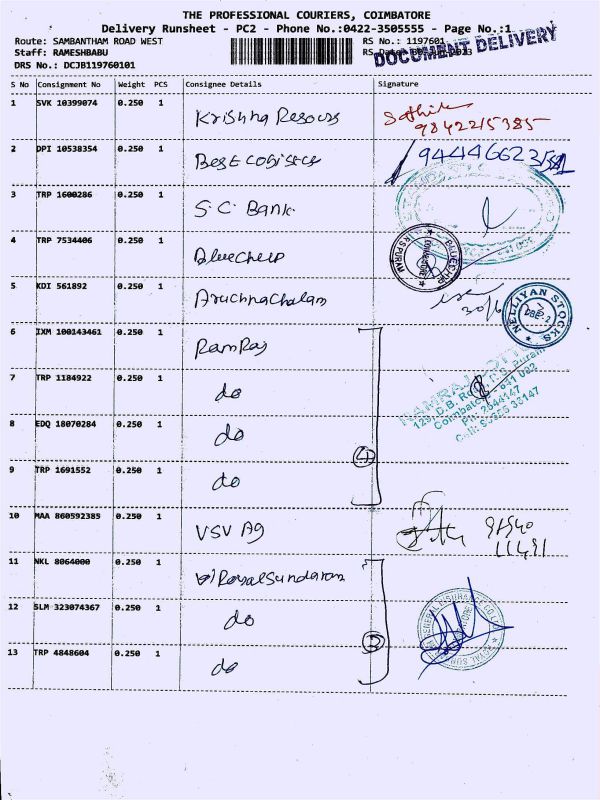 THE PROFESSIONAL COURIERS, COIMBATORE
Delivery Runsheet - PC2 - Phone No.:0422-3505555 - Page No.:1
Route: SAMBANTHAM ROAD WEST RS No.: 1197601
Staff: RAMESHBABU RS Date: 30 Jun 2023
DOCUMENT DELIVERY
DRS No.: DCJB119760101
S No Consignment No Weight PCS Consignee Details Signature
1 SVK 10399074 0.250 1 Krishna Resours
9842215385
2 DPI 10538354 0.250 1 Best Logistics
3 TRP 1600286 0.250 1 S.C. Bank
4 TRP 7534406 0.250 1 Bluechip
BLUECHIP
R S PURAM
5 KDI 561892 0.250 1 Aruchnachalam
30/6
NELLIYAN STOCKS
6 IXM 100143461 0.250 1 RamRaj
7 TRP 1184922 0.250 1 do
Coimbatore - 641 002
Ph: 2544147
8 EDQ 18070284 0.250 1 do
9 TRP 1691552 0.250 1 do
4
10 MAA 860592385 0.250 1 VSV Ag
91540
11491
11 NKL 8064000 0.250 1 Royal Sundaram
12 SLM 323074367 0.250 1 do
3
13 TRP 4848604 0.250 1 do